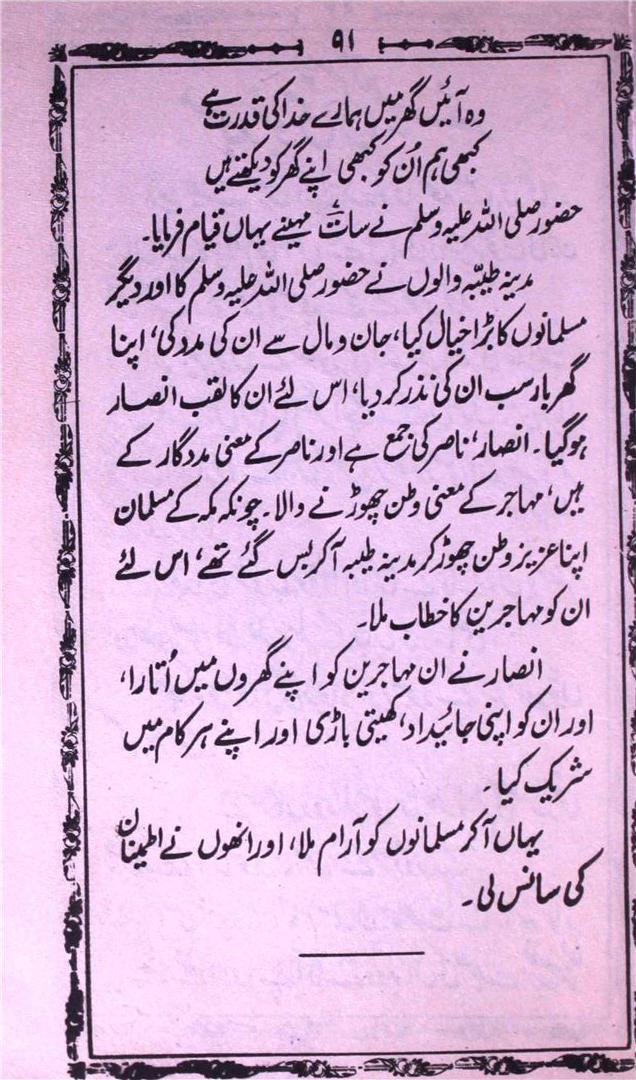 ۹۱
وہ آئیں گھر میں ہمارے خدا کی قدرت ہے
کبھی ہم اُن کو کبھی اپنے گھر کو دیکھتے ہیں
حضور صلی اللہ علیہ وسلم نے سات مہینے یہاں قیام فرمایا۔
مدینہ طیبّہ والوں نے حضور صلی اللہ علیہ وسلم کا اور دیگر
مسلمانوں کا بڑا خیال کیا، جان و مال سے ان کی مدد کی، اپنا
گھر بار سب ان کی نذر کر دیا، اس لئے ان کا لقب انصار
ہوگیا۔ انصار، ناصر کی جمع ہے اور ناصر کے معنی مددگار کے
ہیں، مہاجر کے معنی وطن چھوڑنے والا۔ چونکہ مکہ کے مسلمان
اپنا عزیز وطن چھوڑ کر مدینہ طیبہ آکر بس گئے تھے، اس لئے
ان کو مہاجرین کا خطاب ملا۔
انصار نے ان مہاجرین کو اپنے گھروں میں اُتارا،
اور ان کو اپنی جائیداد، کھیتی باڑی اور اپنے ہر کام میں
شریک کیا۔
یہاں آکر مسلمانوں کو آرام ملا، اور انھوں نے اطمینان
کی سانس لی۔